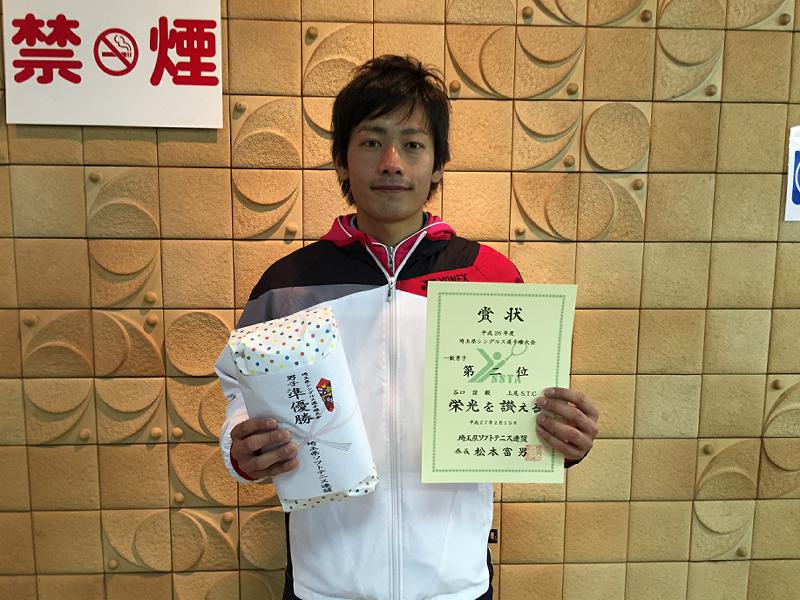 禁煙
YONEX
賞状
平成26年度
埼玉県シングルス選手権大会
一般男子
第二位
SSTA
谷口 諒殿 上尾S.T.C
栄光を讃える
平成27年2月15日
埼玉県ソフトテニス連盟
会長 松本富男
埼玉県シングルス選手権大会
男子準優勝
埼玉県ソフトテニス連盟